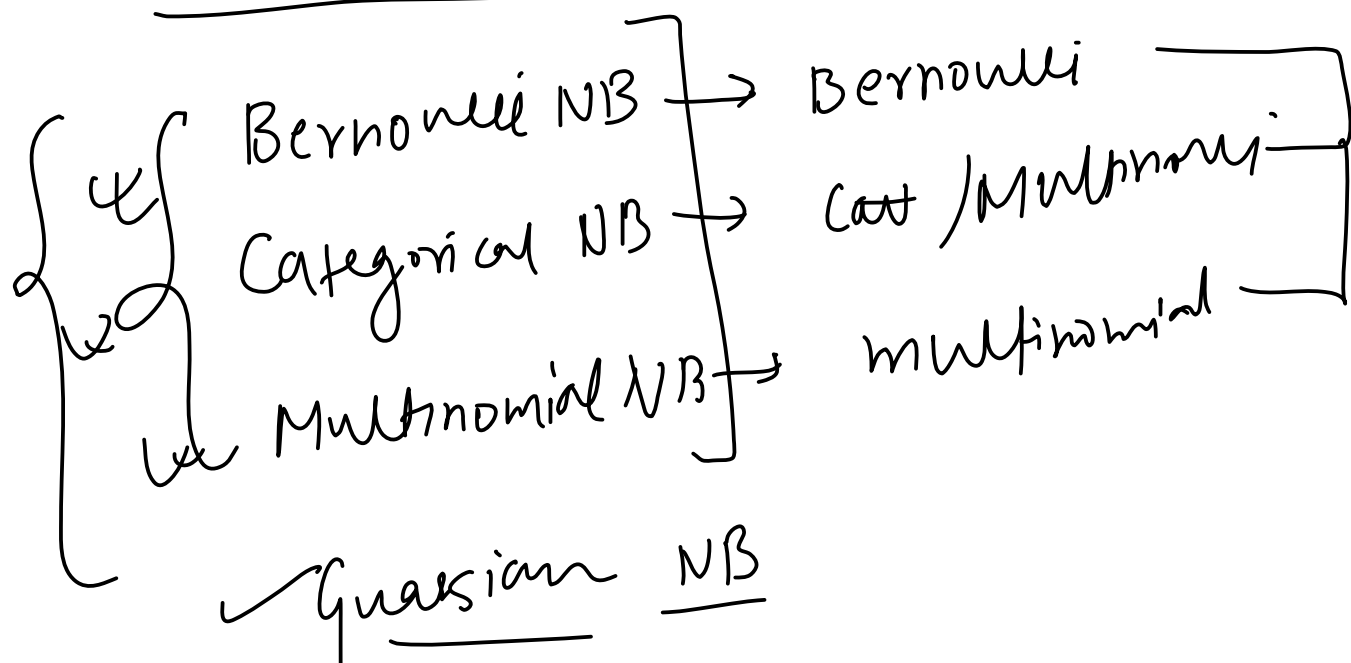 Bernoulli NB → Bernoulli
Categorical NB → Cat /Multinoulli
Multinomial NB → multinomial
Guassian NB